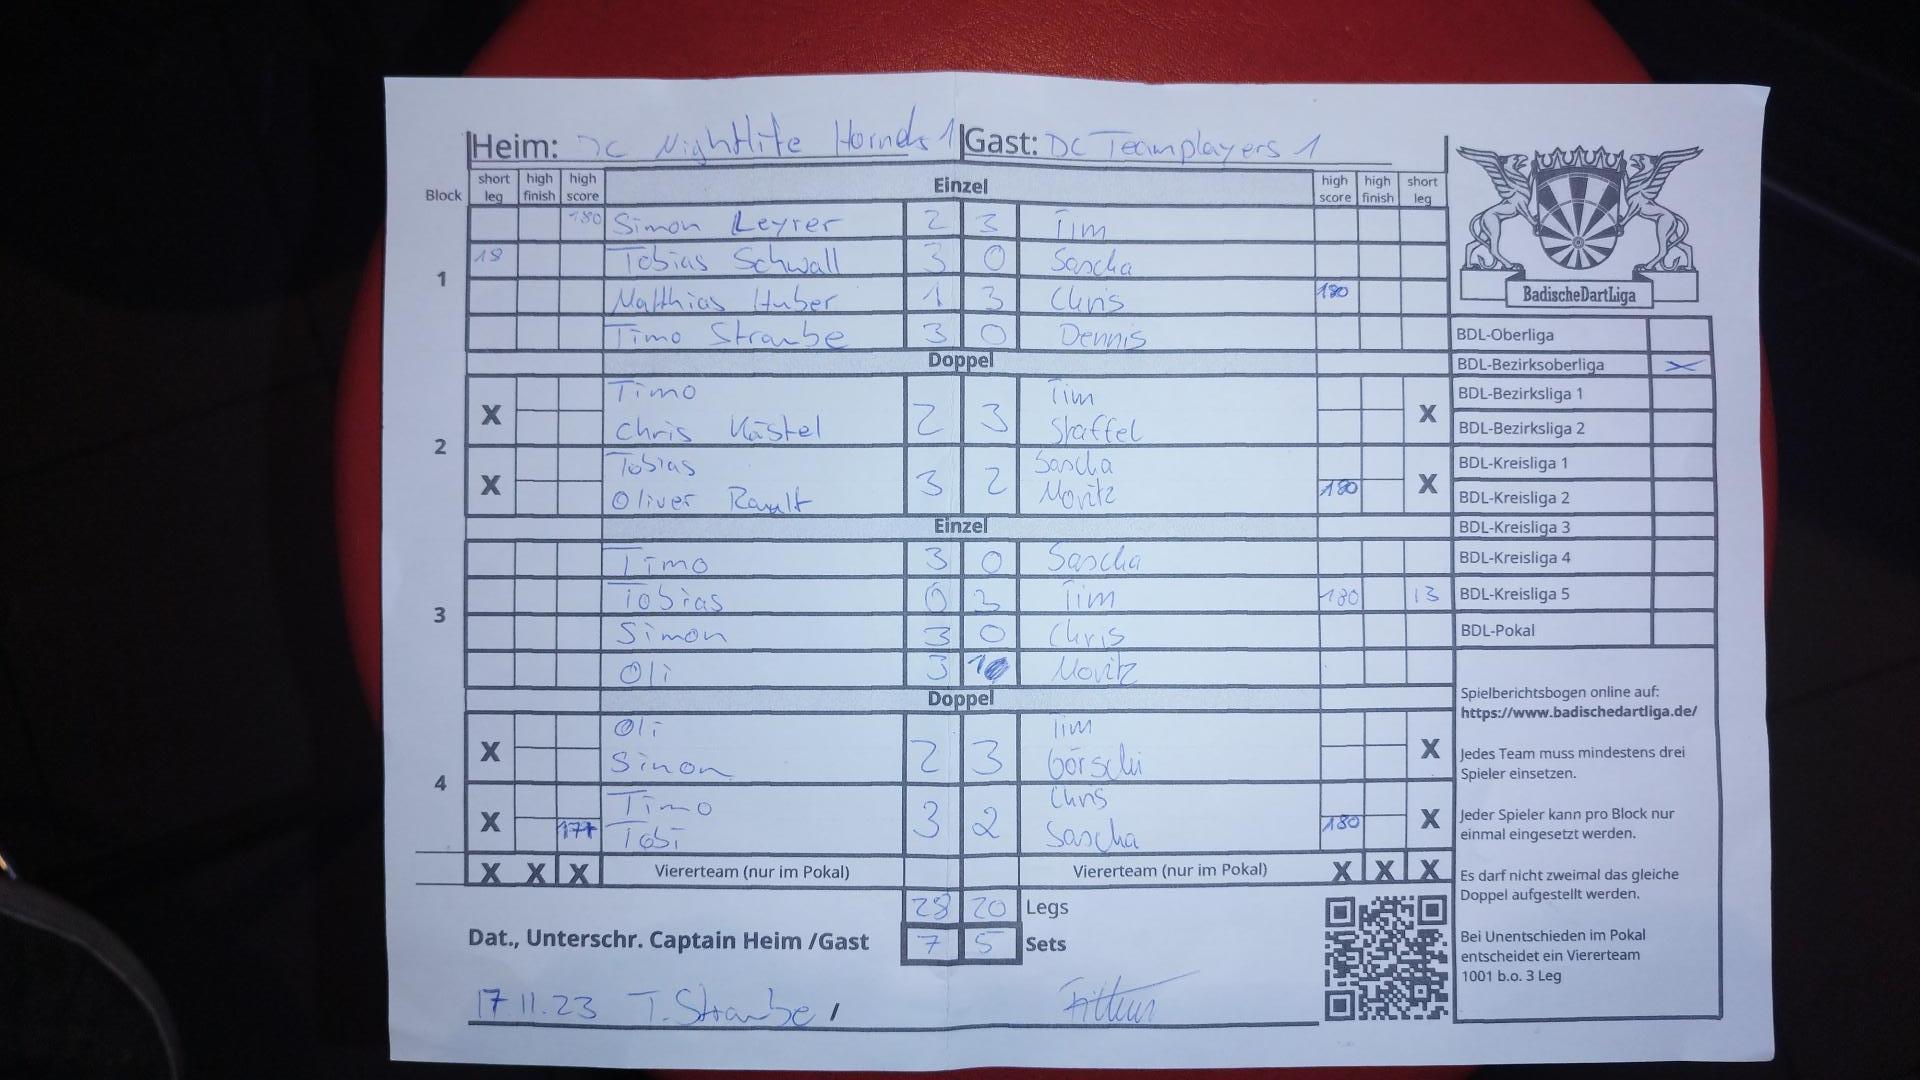 Heim: DC Nightlife Hornets 1 Gast: DC Teamplayers 1
Block short leg high finish high score Einzel high score high finish short leg
1
180 Simon Leyrer 2 3 Tim
18 Tobias Schwall 3 0 Sascha
Matthias Huber 1 3 Chris 180
Timo Straube 3 0 Dennis
Doppel
2
X Timo 2 3 Tim X
Chris Kästel Staffel
X Tobias 3 2 Sascha X
Oliver Moritz 180
Einzel
3
Timo 3 0 Sascha
Tobias 0 3 Tim 180 13
Simon 3 0 Chris
Oli 3 1 Moritz
Doppel
4
X Oli 2 3 Tim X
Simon Görschi
X Timo 3 2 Chris X
177 Tobi Sascha 180
X X X Viererteam (nur im Pokal) Viererteam (nur im Pokal) X X X
28 20 Legs
Dat., Unterschr. Captain Heim /Gast 7 5 Sets
17.11.23 T. Straube /
BadischeDartLiga
BDL-Oberliga
BDL-Bezirksoberliga X
BDL-Bezirksliga 1
BDL-Bezirksliga 2
BDL-Kreisliga 1
BDL-Kreisliga 2
BDL-Kreisliga 3
BDL-Kreisliga 4
BDL-Kreisliga 5
BDL-Pokal
Spielberichtsbogen online auf:
https://www.badischedartliga.de/
Jedes Team muss mindestens drei
Spieler einsetzen.
Jeder Spieler kann pro Block nur
einmal eingesetzt werden.
Es darf nicht zweimal das gleiche
Doppel aufgestellt werden.
Bei Unentschieden im Pokal
entscheidet ein Viererteam
1001 b.o. 3 Leg